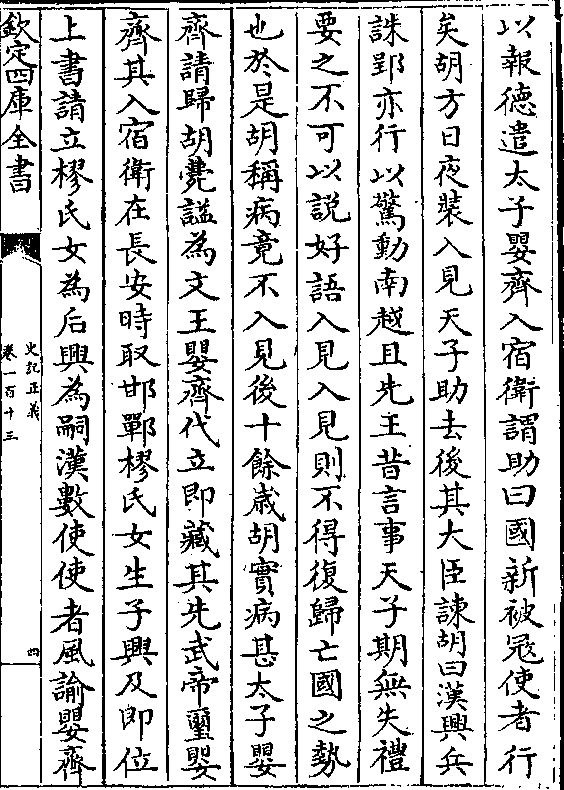 以報德遣太子嬰齊入宿衛謂助曰國新被冦使者行
矣胡方日夜裝入見天子助去後其大臣諫胡曰漢興兵
誅郢亦行以驚動南越且先王昔言事天子期無失禮
要之不可以説好語入見入見則不得復歸亡國之勢
也於是胡稱病竟不入見後十餘歳胡實病甚太子嬰
齊請歸胡薨諡為文王嬰齊代立即藏其先武帝璽嬰
齊其入宿衛在長安時取邯鄲樛氏女生子興及即位
上書請立樛氏女為后興為嗣漢數使使者風諭嬰齊
欽定四庫全書
史記正義
卷一百十三
四